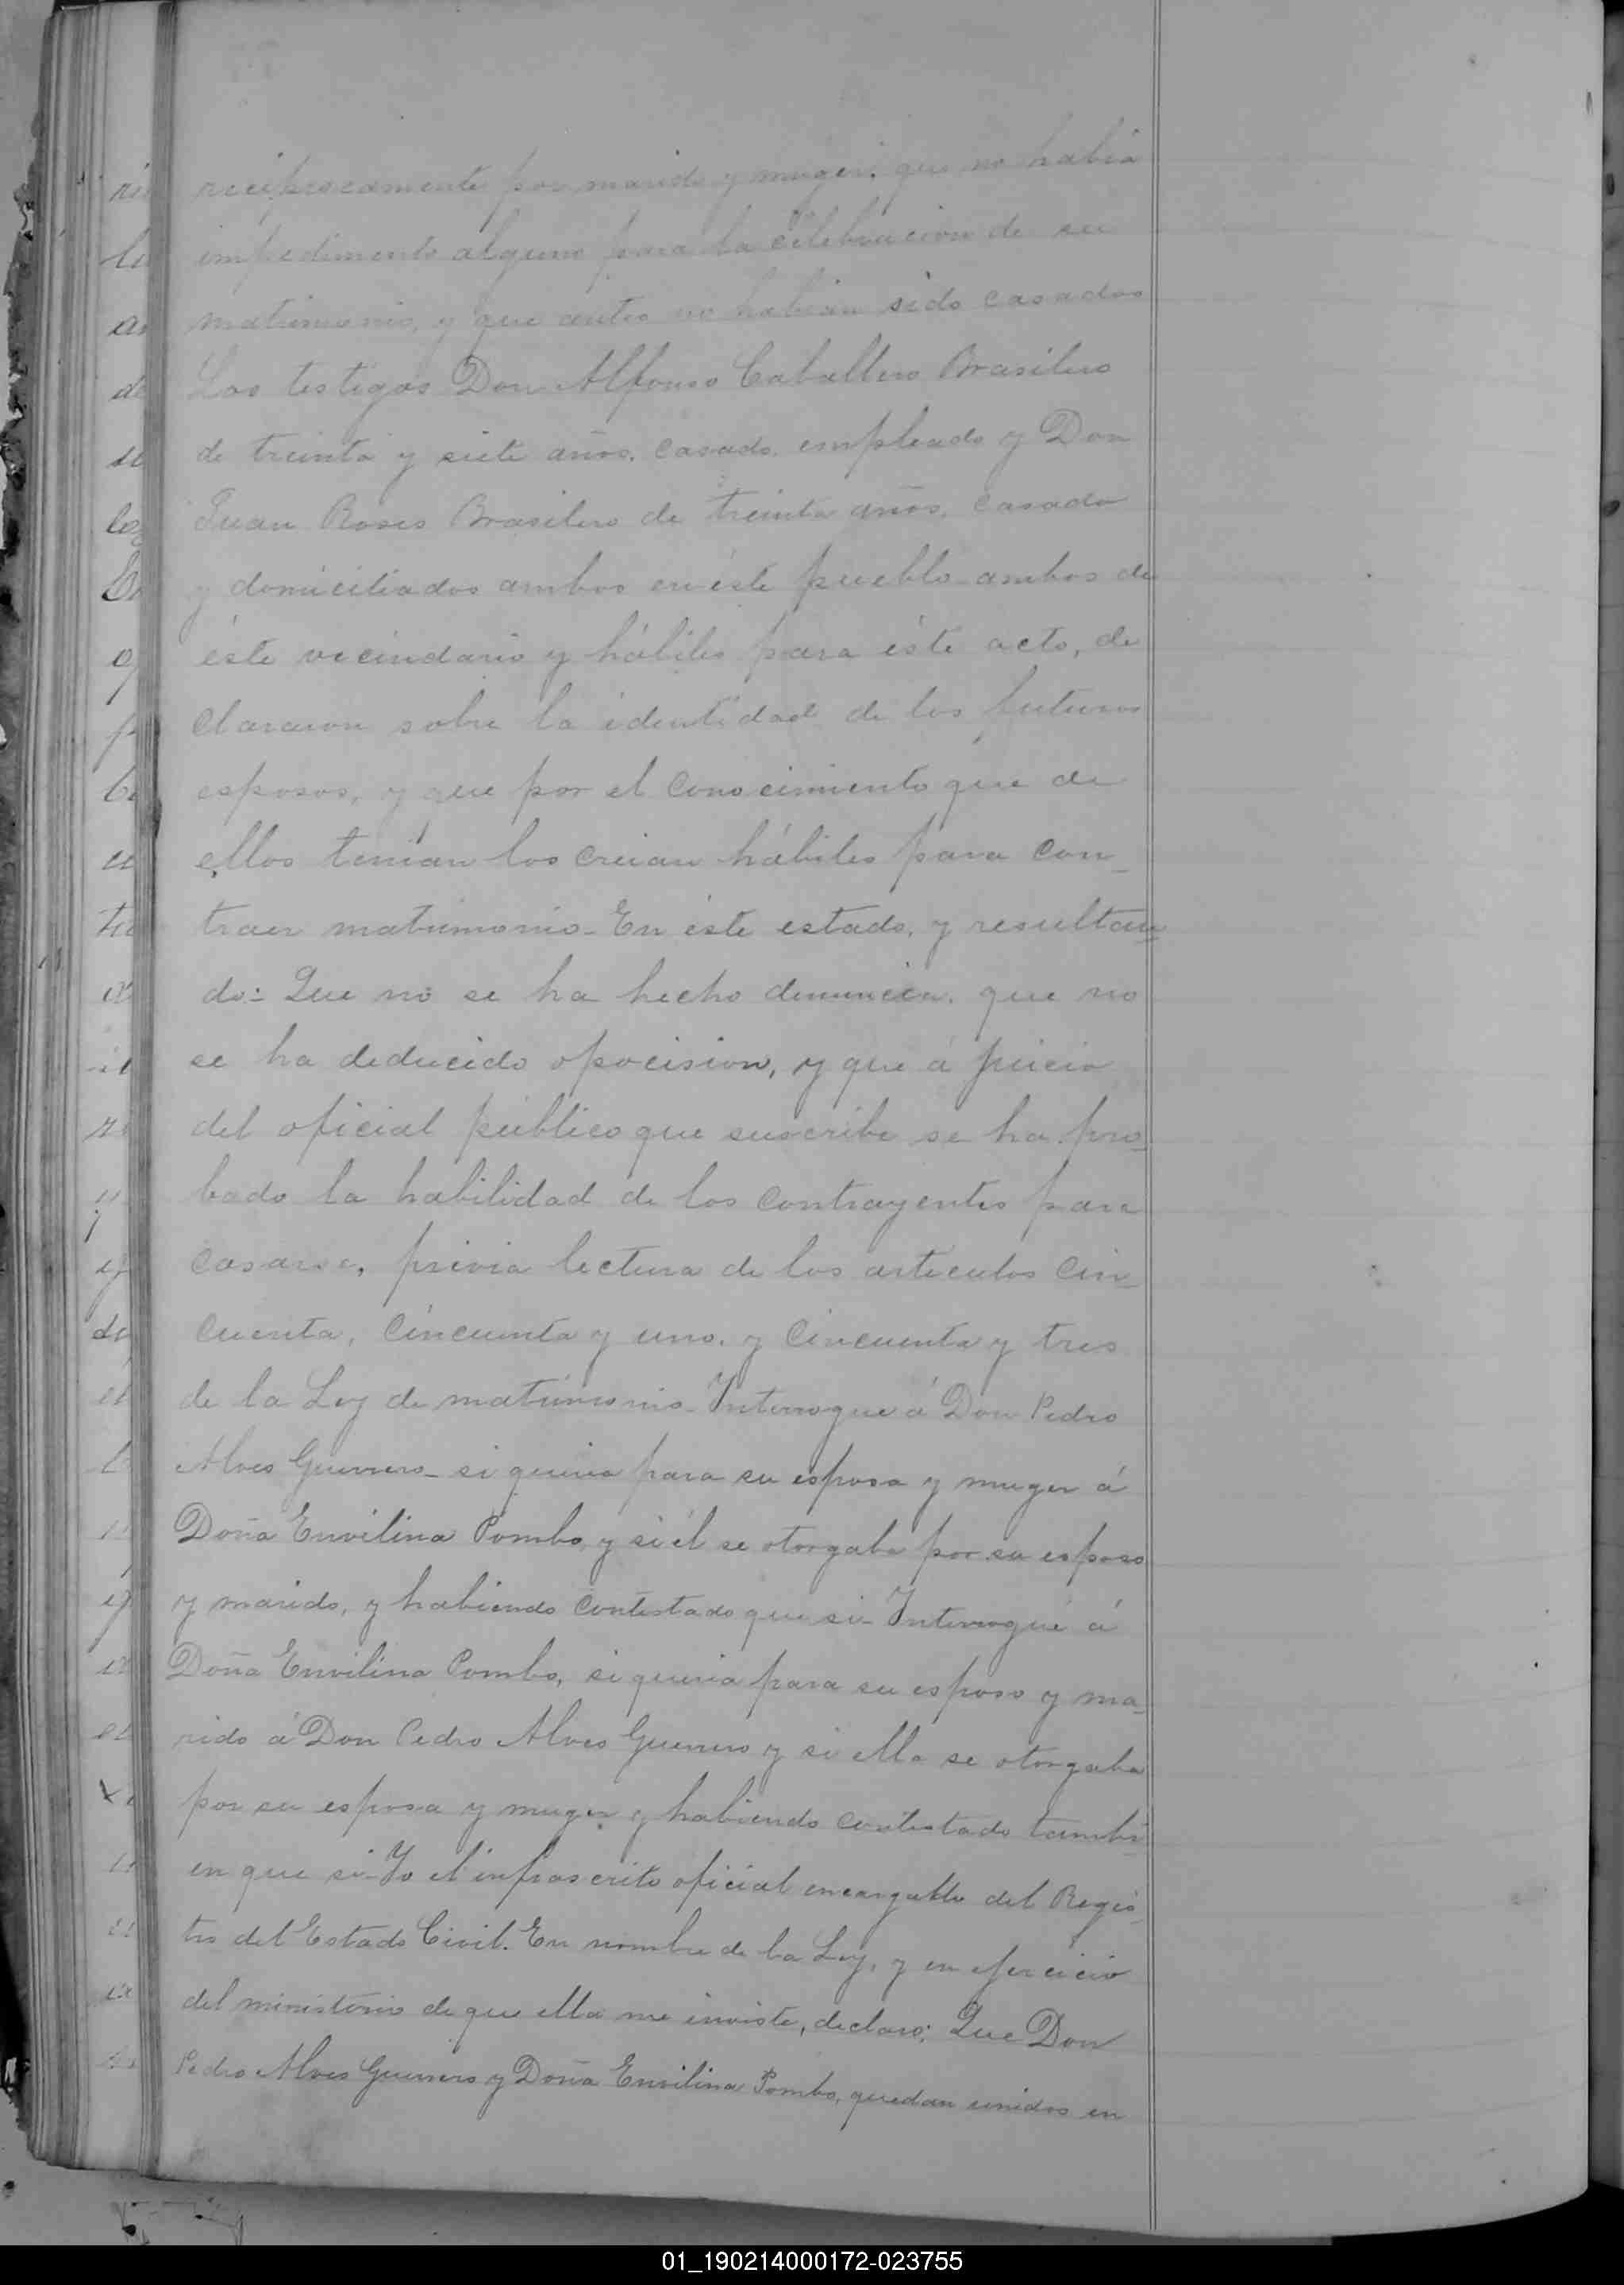 reciprocamente por marido y muger; que no habia
impedimento alguno para la celebracion de su
matrimonio, y que antes no habian sido casados
Los testigos Don Alfonso Caballero Brasilero
de treinta y siete años, casado, empleado y Don
Juan Roses Brasilero de treinta años, casado
y domiciliados ambos en éste pueblo ambos de
éste vecindario y hábiles para éste acto, de
clararon sobre la identidad de los futuros
esposos, y que por el conocimiento que de
ellos tenían los creian hábiles para con_
traer matrimonio_ En éste estado, y resultan_
do: Que no se ha hecho denuncia, que no
se ha deducido opocision, y que á juicio
del oficial público que suscribe se ha pro_
bado la habilidad de los contrayentes para
casarse, prévia lectura de los articulos cin_
cuenta, cincuenta y uno, y cincuenta y tres
de la Ley de matrimonio_ Interrogue á Don Pedro
Alves Guerrero_ si queria para su esposa y muger á
Doña Envilina Pombo, y si él se otorgaba por su esposo
y marido, y habiendo contestado que si_ Interrogué á
Doña Envilina Pombo, si queria para su esposo y ma_
rido á Don Pedro Alves Guerrero y si ella se otorgaba
por su esposa y muger y habiendo contestado tambi_
en que si_ Yo el infrascrito oficial encargado del Regis_
tro del Estado Civil. En nombre de la Ley, y en ejercicio
del ministerio de que ella me inviste, declaro; Que Don
Pedro Alves Guerrero y Doña Envilina Pombo, quedan unidos en
01_190214000172-023755